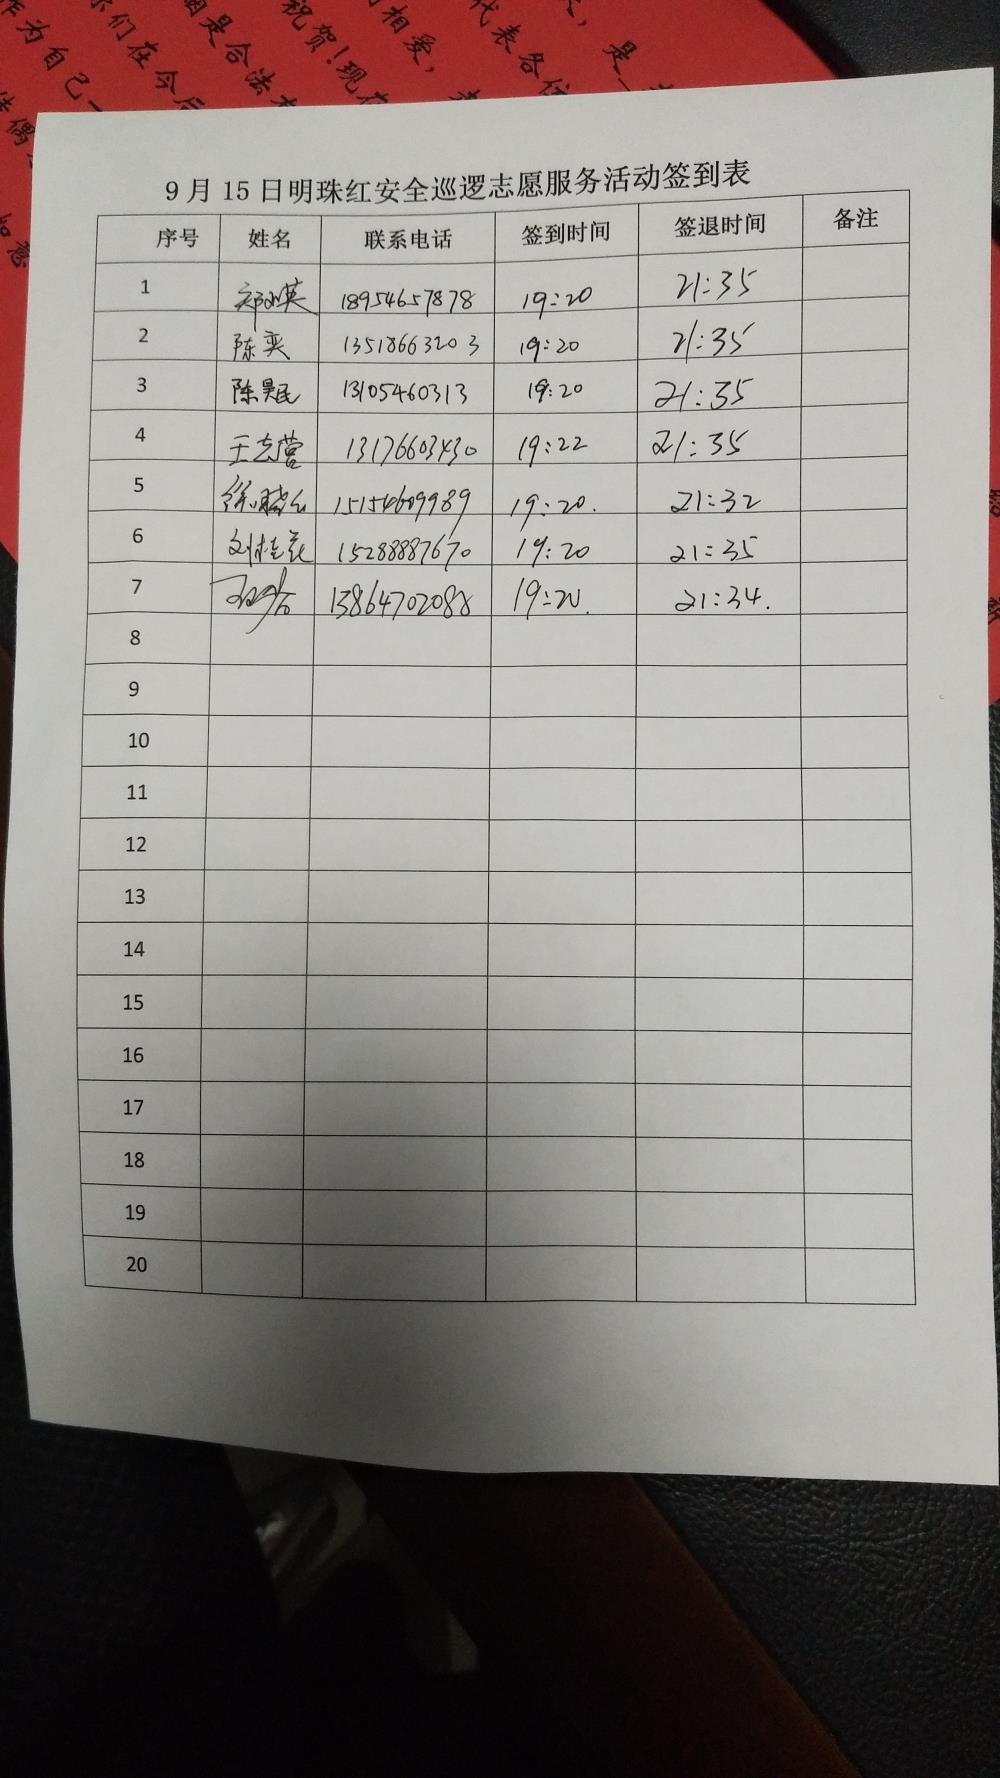 是
代表各位
相爱，
祝贺！现在
是合法
你们在今后
作为自己
偶
如意
9月15日明珠红安全巡逻志愿服务活动签到表
序号 姓名 联系电话 签到时间 签退时间 备注
1 18954657878 19:20 21:35
2 陈奕 13518663203 19:20 21:35
3 陈昊民 13105460313 19:20 21:35
4 王志营 13176603430 19:22 21:35
5 徐晓云 15154609989 19:20. 21:32
6 刘桂花 15288887670 19:20 21:35
7 13864702088 19:20. 21:34.
8
9
10
11
12
13
14
15
16
17
18
19
20